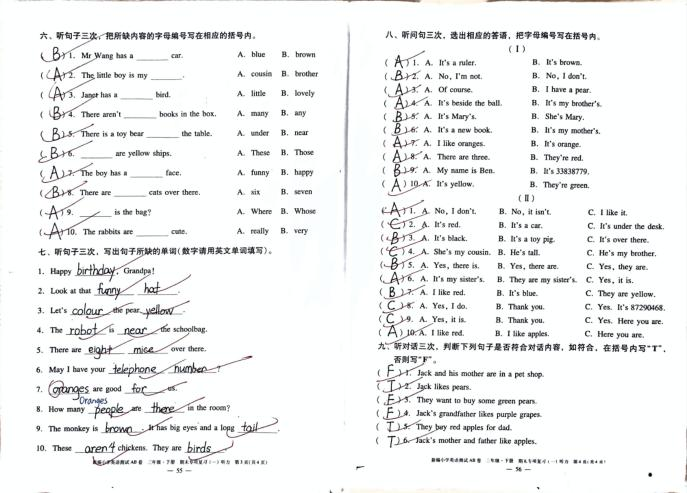 六、听句子三次，把所缺内容的字母编号写在相应的括号内。
( B ) 1. Mr Wang has a ______ car. A. blue B. brown
( A ) 2. The little boy is my ______. A. cousin B. brother
( A ) 3. Janet has a ______ bird. A. little B. lovely
( B ) 4. There aren't ______ books in the box. A. many B. any
( B ) 5. There is a toy bear ______ the table. A. under B. near
( B ) 6. ______ are yellow ships. A. These B. Those
( A ) 7. The boy has a ______ face. A. funny B. happy
( B ) 8. There are ______ cats over there. A. six B. seven
( A ) 9. ______ is the bag? A. Where B. Whose
( A ) 10. The rabbits are ______ cute. A. really B. very
七、听句子三次，写出句子所缺的单词(数字请用英文单词填写)。
1. Happy birthday, Grandpa!
2. Look at that funny hat.
3. Let's colour the pear yellow.
4. The robot is near the schoolbag.
5. There are eight mice over there.
6. May I have your telephone number?
7. Oranges are good for us.
Oranges
8. How many people are there in the room?
9. The monkey is brown. It has big eyes and a long tail.
10. These aren4 chickens. They are birds.
新编小学英语测试AB卷 二年级·下册 期末专项复习(一)听力 第3页(共4页)
— 55 —
八、听问句三次，选出相应的答语，把字母编号写在括号内。
( I )
( A ) 1. A. It's a ruler. B. It's brown.
( B ) 2. A. No, I'm not. B. No, I don't.
( A ) 3. A. Of course. B. I have a pear.
( A ) 4. A. It's beside the ball. B. It's my brother's.
( B ) 5. A. It's Mary's. B. She's Mary.
( B ) 6. A. It's a new book. B. It's my mother's.
( A ) 7. A. I like oranges. B. It's orange.
( A ) 8. A. There are three. B. They're red.
( B ) 9. A. My name is Ben. B. It's 33838779.
( A ) 10. A. It's yellow. B. They're green.
( II )
( A ) 1. A. No, I don't. B. No, it isn't. C. I like it.
( C ) 2. A. It's red. B. It's a car. C. It's under the desk.
( B ) 3. A. It's black. B. It's a toy pig. C. It's over there.
( C ) 4. A. She's my cousin. B. He's tall. C. He's my brother.
( B ) 5. A. Yes, there is. B. Yes, there are. C. Yes, they are.
( A ) 6. A. It's my sister's. B. They are my sister's. C. Yes, it is.
( B ) 7. A. I like red. B. It's blue. C. They are yellow.
( C ) 8. A. Yes, I do. B. Thank you. C. Yes. It's 87290468.
( C ) 9. A. Yes, it is. B. Thank you. C. Yes. Here you are.
( A ) 10. A. I like red. B. I like apples. C. Here you are.
九、听对话三次，判断下列句子是否符合对话内容，如符合，在括号内写"T"，
否则写"F"。
( F ) 1. Jack and his mother are in a pet shop.
( T ) 2. Jack likes pears.
( F ) 3. They want to buy some green pears.
( F ) 4. Jack's grandfather likes purple grapes.
( T ) 5. They buy red apples for dad.
( T ) 6. Jack's mother and father like apples.
新编小学英语测试AB卷 二年级·下册 期末专项复习(一)听力 第4页(共4页)
— 56 —